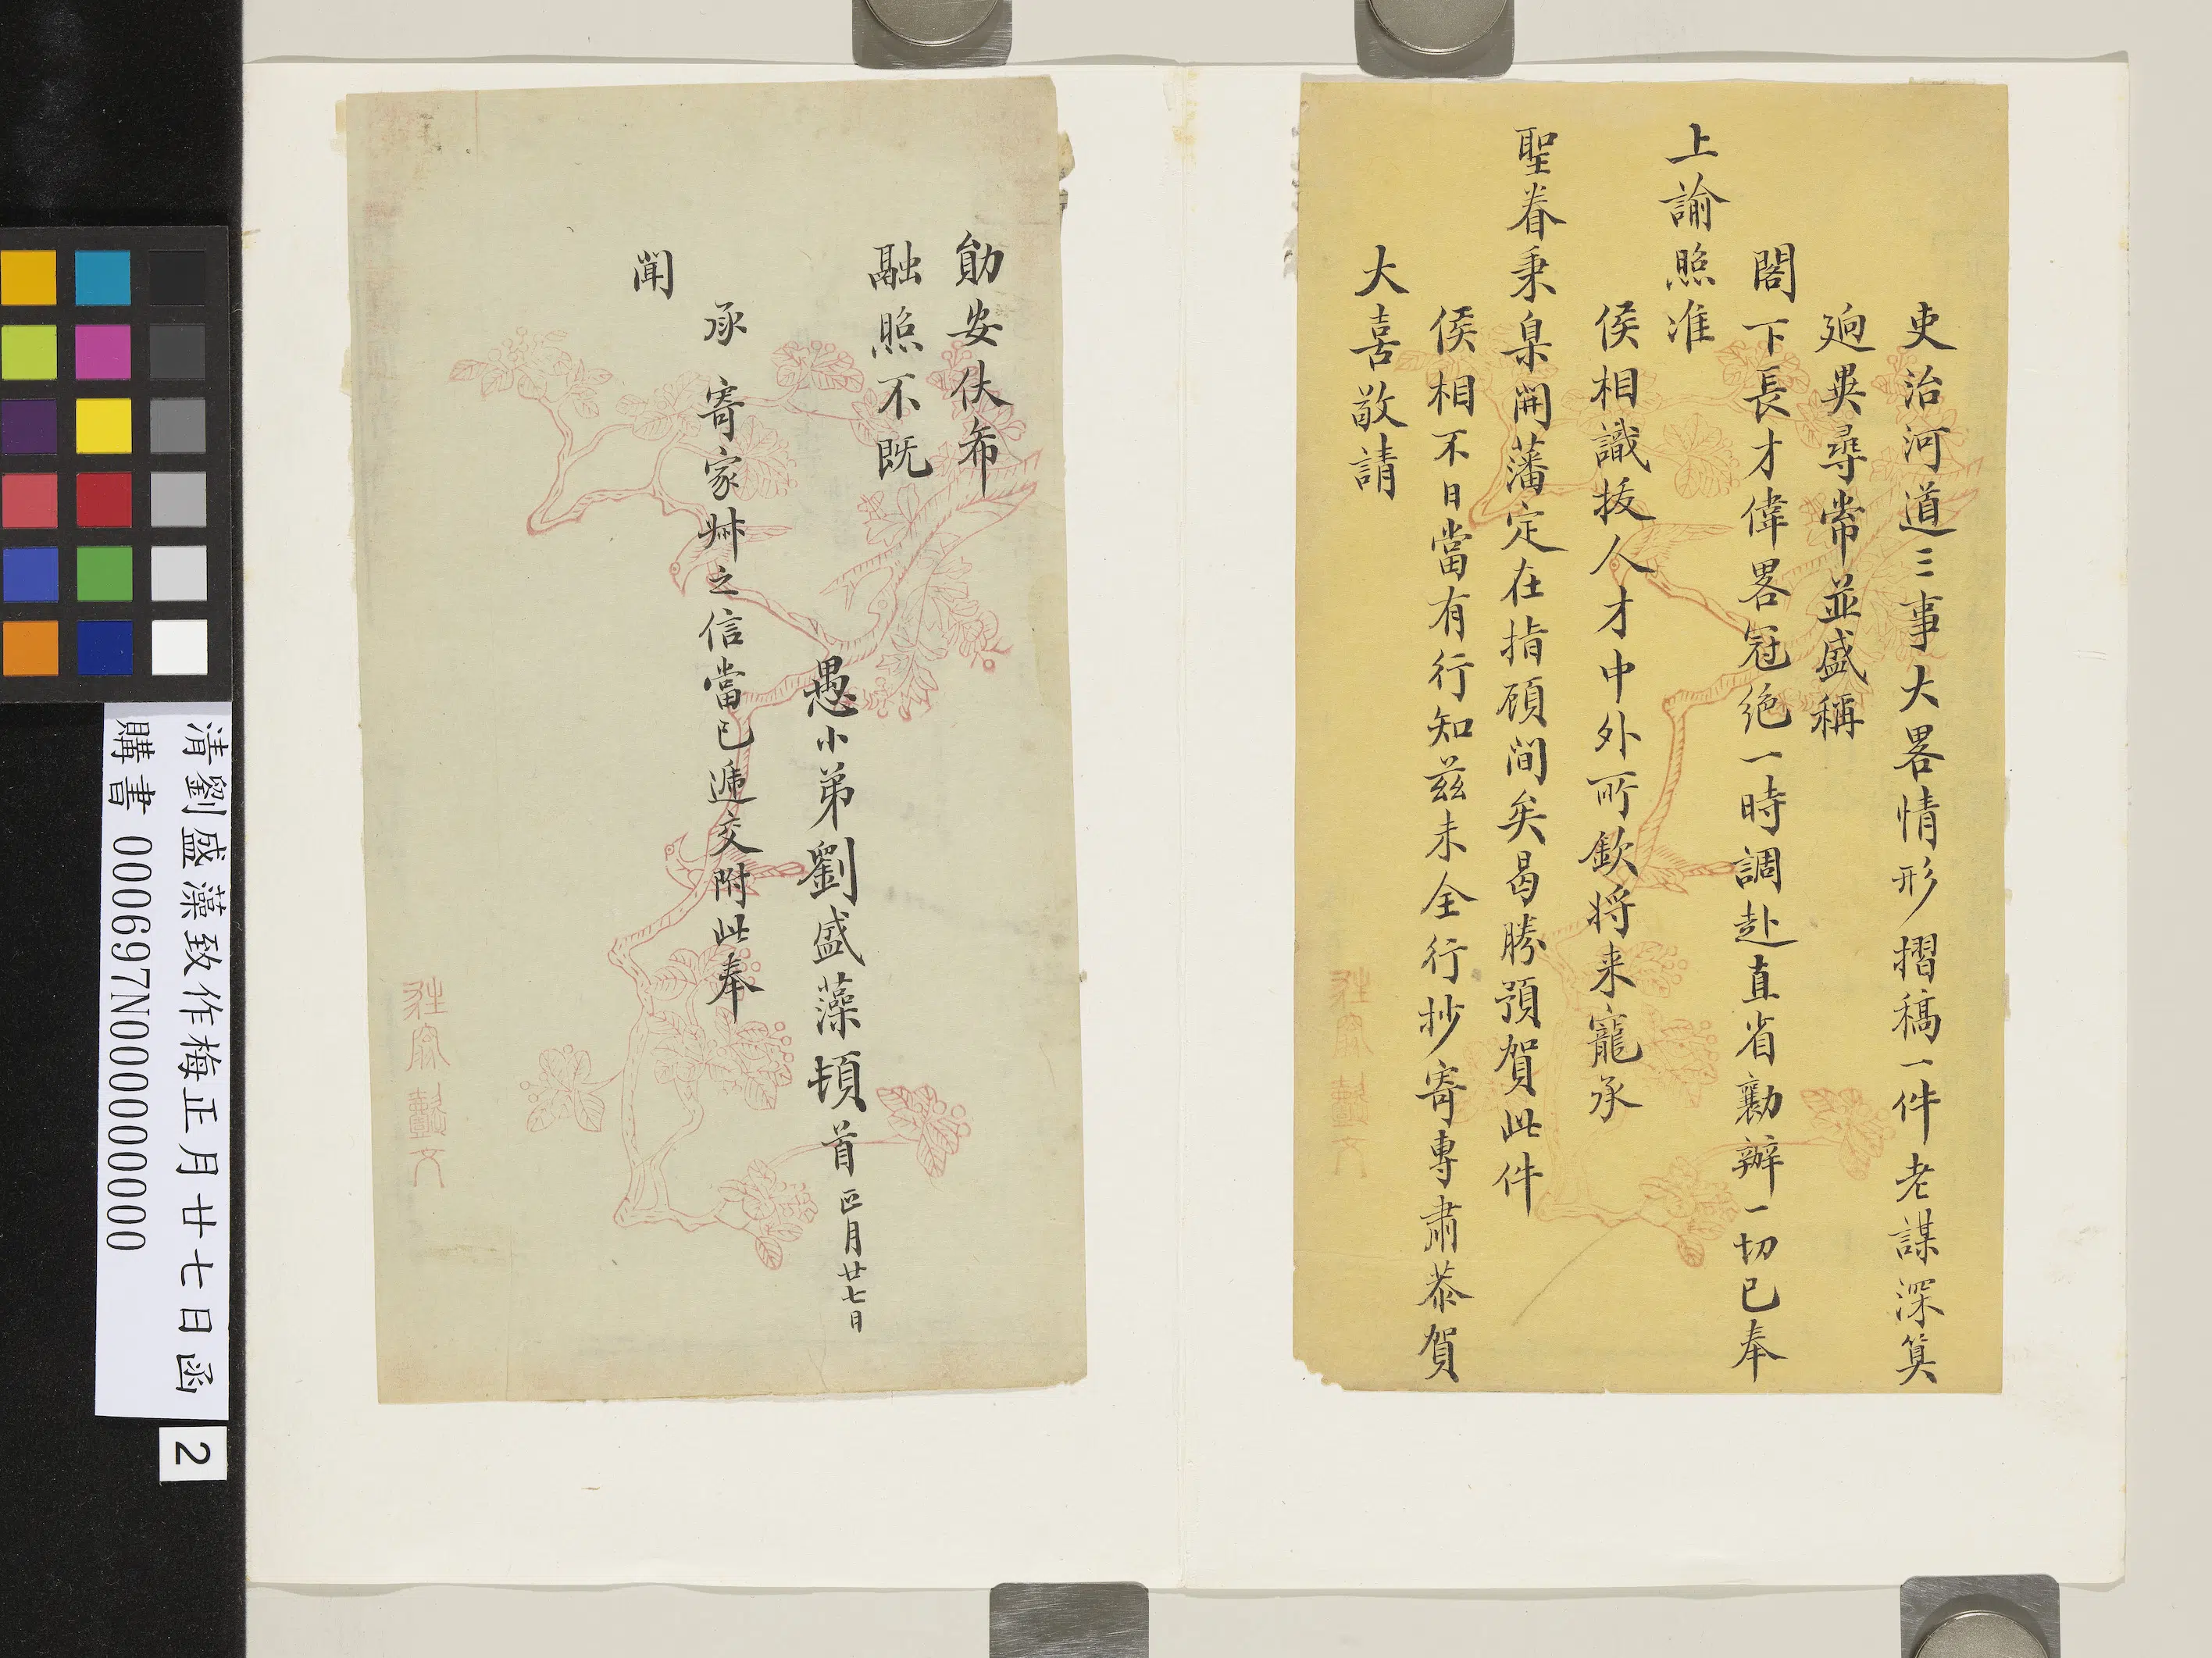 吏治河道三事大畧情形摺稿一件老謀深算
逈異尋常並盛稱
閣下長才偉畧冠絶一時調赴直省勷辦一切已奉
上諭照准
侯相識拔人才中外所欽将来寵承
聖眷秉臬開藩定在指顧間矣曷勝預賀此件
侯相不日當有行知兹未全行抄寄專肅恭賀
大喜敬請
勛安伏布
融照不既
愚小弟劉盛藻頓首正月廿七日
承寄家叔之信當已遞交附此奉
聞
清劉盛藻致作梅正月廿七日函
購書 000697N000000000
2